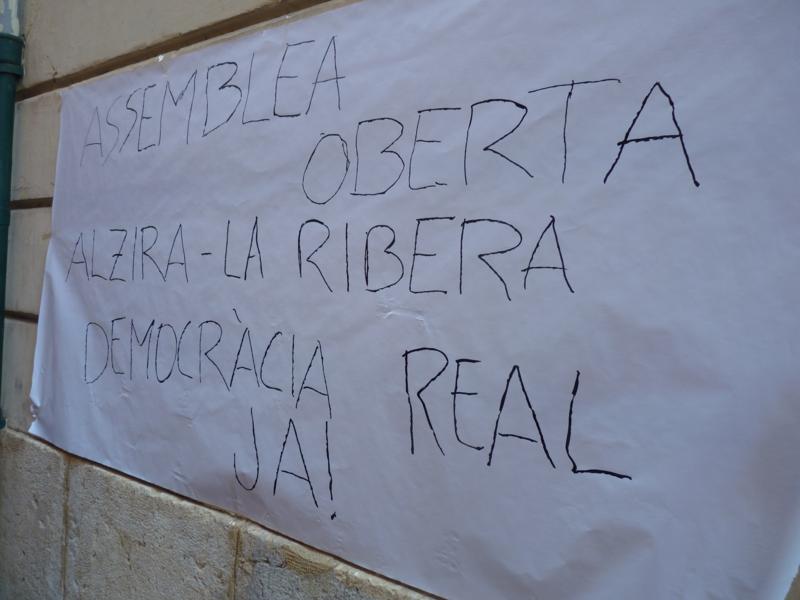 ASSEMBLEA
OBERTA
ALZIRA-LA RIBERA
DEMOCRÀCIA REAL
JA!